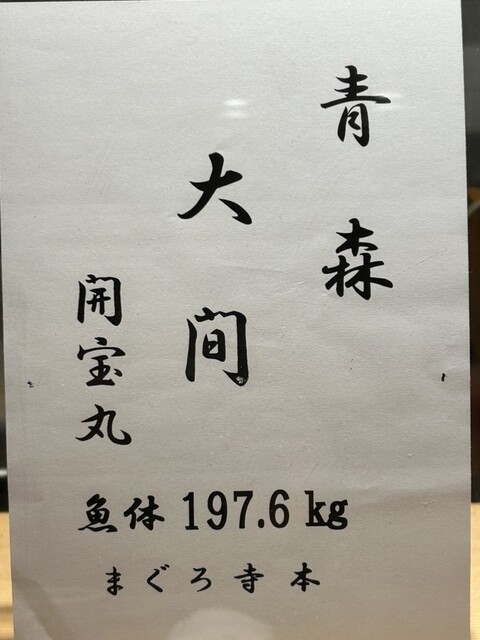 青森
大間
開宝丸
魚体 197.6 kg
まぐろ寺本